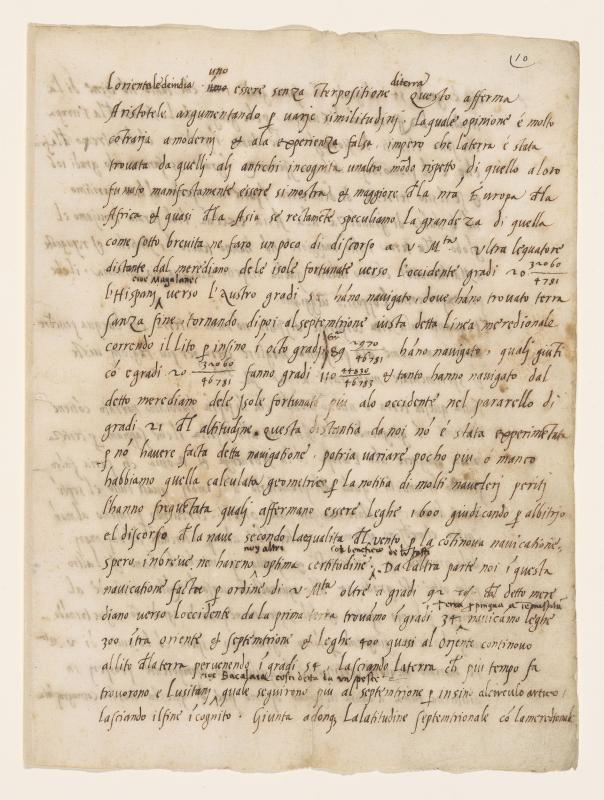 10
uno diterra
l oriente le de india essere senza iterpositione Questo afferma
Aristotele argumentando p varie similitudinj. laquale opinione é molto
cotraria a modernj et ala experienza falsa, impero che laterra é stata
trovata da quellj alj antichi incognita unaltro modo rispetto di quello a loro
fu noto manifestamente essere si mostra et maggiore dla nra Europa dla
Africa et quasi dla Asia se rectamete speculiamo la grandeza di quella
come sotto brevita ne faro un poco di discorso a v. Mta ultra lequatore
distante dal merediano dele isole fortunate verso l'occidente gradi 20 32060/46781
cioe Magalanes
l'Hispanj verso l'Austro gradi 54 háno navigato, dove háno trovato terra
sanza fine, tornando dipoi al septemtrione iusta detta linea meridionale
correndo il lito p insino i octo gradj 89 2970/46781 háno navigato, qualj giuti
có e gradi 20 32060/46781 fanno gradi 110 44830/46783 et tanto hanno navigato dal
detto merediano dele Isole fortunate piu alo occidente nel pararello di
gradi 21 dl altitudine. Questa distantia da noi nó é stata experimetata
p nó havere facta detta navigatione. potria variare pocho piu ó manco
habbiamo quella calculata geometrice p la notitia di molti navclerj peritj
l'hanno frequetata qualj affermano essere leghe 1600. giudicando p albitrio
el discorso dla nave secondo laequalita dl vento, p la cótinova navicatione,
noj altri
spero inbreve, ne hareno optima certitudine. Da l altra parte noi i questa
navicatione facta p ordine di v. Mta oltre a gradi 92 detto mere
diano verso loccidente da la prima terra trovamo i gradi 34 navicamo leghe
300 itra oriente et septemtrione et leghe 400 quasi al Oriente continovo
allito dlaterra pervenendo i gradi 54, lasciando laterra piu tempo fa
cioe Bacalaia cosi detta da un pesce
trovorono e Lusitanj, quale seguirono piu al septemtrione p insino alcirculo artico,
lasciando il fine icognito. Giunta adonq Lalatitudine septemtrionale có lameredionale